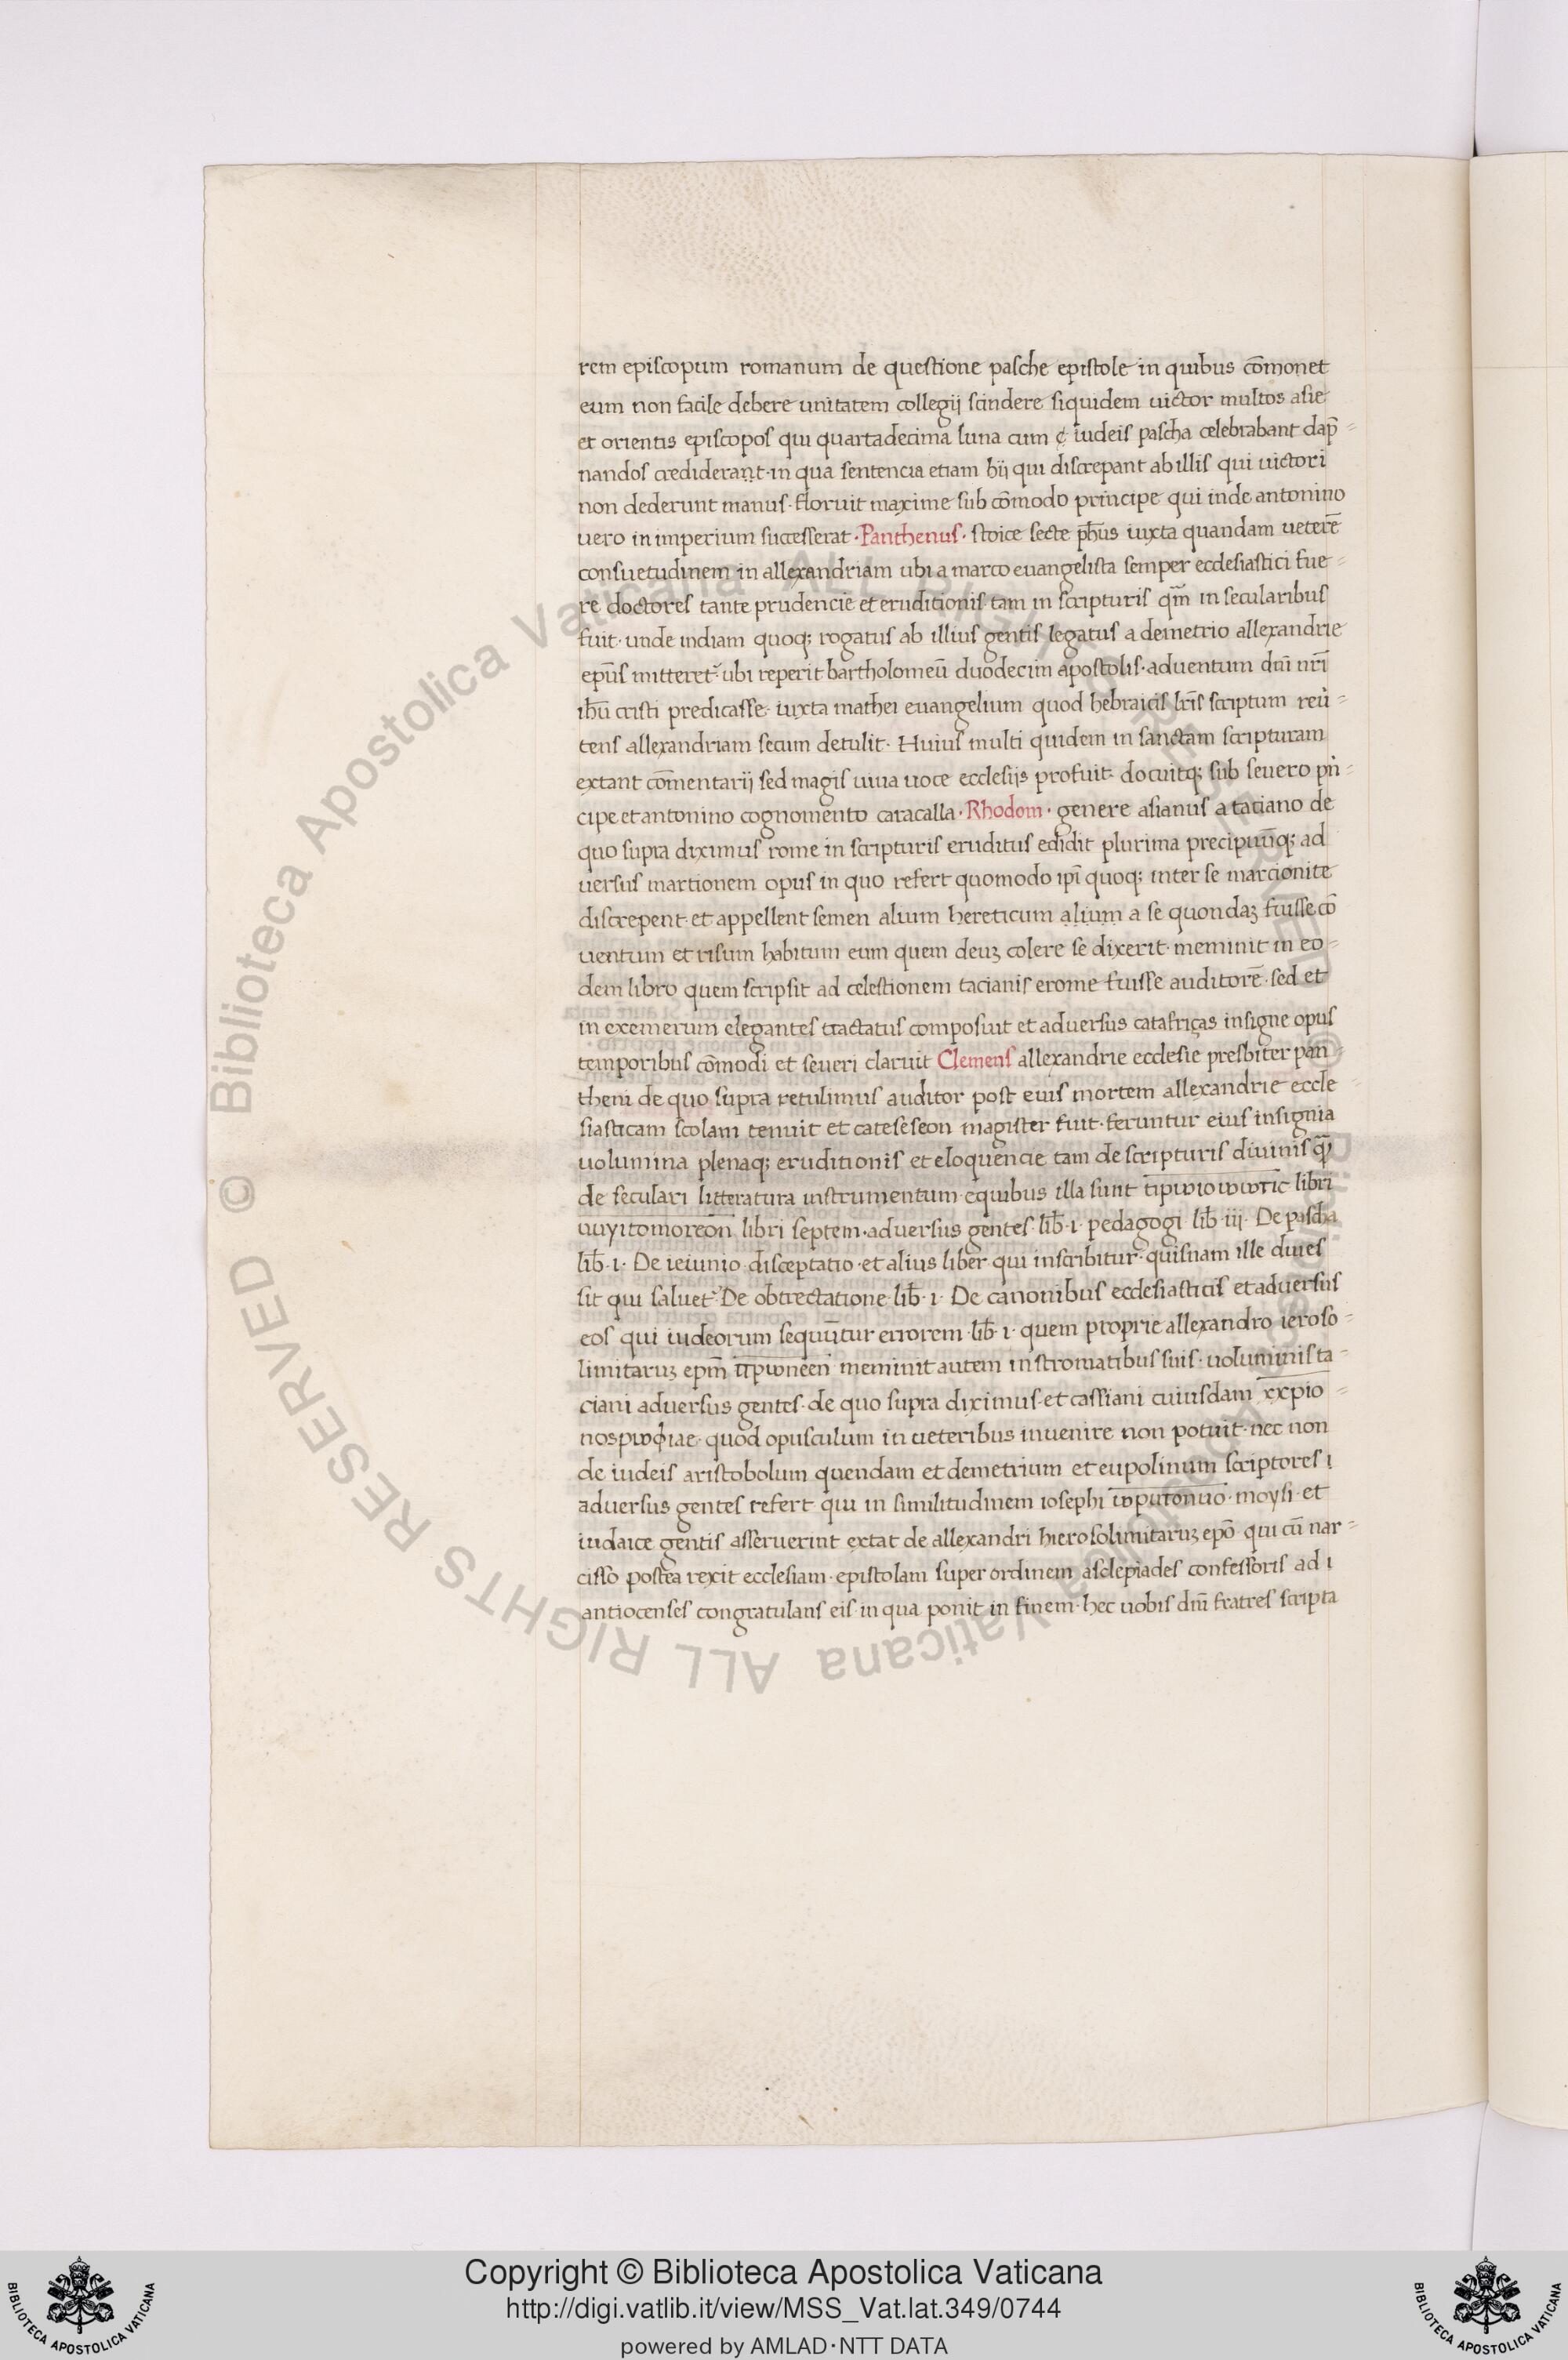 rem episcopum romanum de questione pasche epistole in quibus cōmonet
eum non facile debere unitatem collegij scindere siquidem uictor multos asie
et orientis episcopos qui quartadecima luna cum ȼ iudeis pascha celebrabant dap̄
nandos crediderant · in qua sentencia etiam hij qui discrepant ab illis qui uictori
non dederunt manus · floruit maxime sub cōmodo principe qui inde antonino
uero in imperium successerat · Panthenus · stoice secte ph̄us iuxta quandam ueterē
consuetudinem in allexandriam ubi a marco euangelista semper ecclesiastici fue
re doctores tante prudencie et eruditionis tam in scripturis qm̄ in secularibus
fuit · unde indiam quoq; rogatus ab illius gentis legatus a demetrio allexandrie
ep̄us mitteret ubi reperit bartholomeū duodecim apostolis · aduentum dn̄i nr̄i
ih̄u cristi predicasse · iuxta mathei euangelium quod hebraicis lr̄is scriptum reu
tens allexandriam secum detulit · Huius multi quidem in sanctam scripturam
extant cōmentarij sed magis uiua uoce ecclesijs profuit · docuitq; sub seuero pn
cipe et antonino cognomento caracalla · Rhodom · genere asianus a tatiano de
quo supra diximus rome in scripturis eruditus edidit plurima precipuūq; ad
uersus martionem opus in quo refert quomodo ip̄i quoq; inter se marcionite
discrepent et appellent semen alium hereticum alium a se quondaꝫ fuisse cō
uentum et risum habitum eum quem deuꝫ colere se dixerit · meminit in eo
dem libro quem scripsit ad celestionem tacianis erome fuisse auditorē · sed et
in exemerum elegantes tractatus composuit et aduersus catafrigas insigne opus
temporibus cōmodi et seueri claruit Clemens allexandrie ecclesie presbiter pan
theni de quo supra retulimus auditor post eius mortem allexandrie eccle
siasticam scolam tenuit et cateseseon magister fuit · feruntur eius insignia
uolumina plenaq; eruditionis et eloquencie tam de scripturis diuinis q̄
de seculari litteratura instrumentum · equibus illa sunt tipωιοωωτιc libri
uuyitomoreon̄ libri septem · aduersus gentes · lib̄ · i · pedagogi lib̄ · iij · De pascha
lib̄ · i · De ieiunio disceptatio · et alius liber qui inscribitur · quisnam ille diues
sit qui saluet De obtrectatione · lib̄ · i · De canonibus ecclesiasticis et aduersus
eos qui iudeorum sequūtur errorem · lib̄ · i · quem proprie allexandro ieroso
limitaruꝫ epm̄ πpωneen meminit autem in stromatibus suis · uoluminis ta
ciani aduersus gentes · de quo supra diximus · et cassiani cuiusdam xxpio
nospωφιae · quod opusculum in ueteribus inuenire non potuit · nec non
de iudeis aristobolum quendam et demetrium et eupolinum scriptores i
aduersus gentes refert qui in similitudinem iosephi ωputonuo · moysi · et
iudaice gentis asseruerint extat de allexandri hierosolimitaruꝫ epō qui cū nar
cisso postea rexit ecclesiam · epistolam super ordinem asclepiades confessoris ad i
antiocenses congratulans eis · in qua ponit in finem · hec uobis dn̄i fratres scripta
Copyright © Biblioteca Apostolica Vaticana
http://digi.vatlib.it/view/MSS_Vat.lat.349/0744
powered by AMLAD·NTT DATA